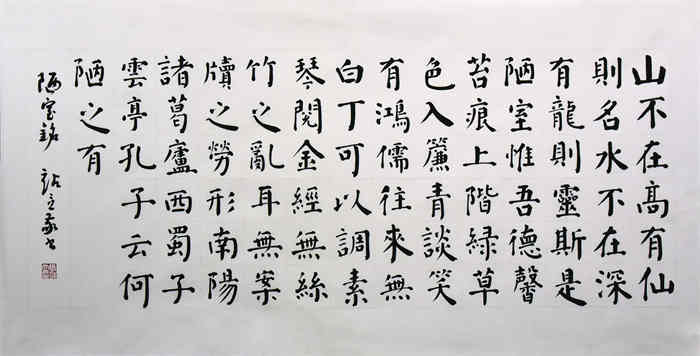 山不在高有仙
則名水不在深
有龍則靈斯是
陋室惟吾德馨
苔痕上階緑草
色入簾青談笑
有鴻儒往來無
白丁可以調素
琴閱金經無絲
竹之亂耳無案
牘之勞形南陽
諸葛廬西蜀子
雲亭孔子云何
陋之有
陋室銘